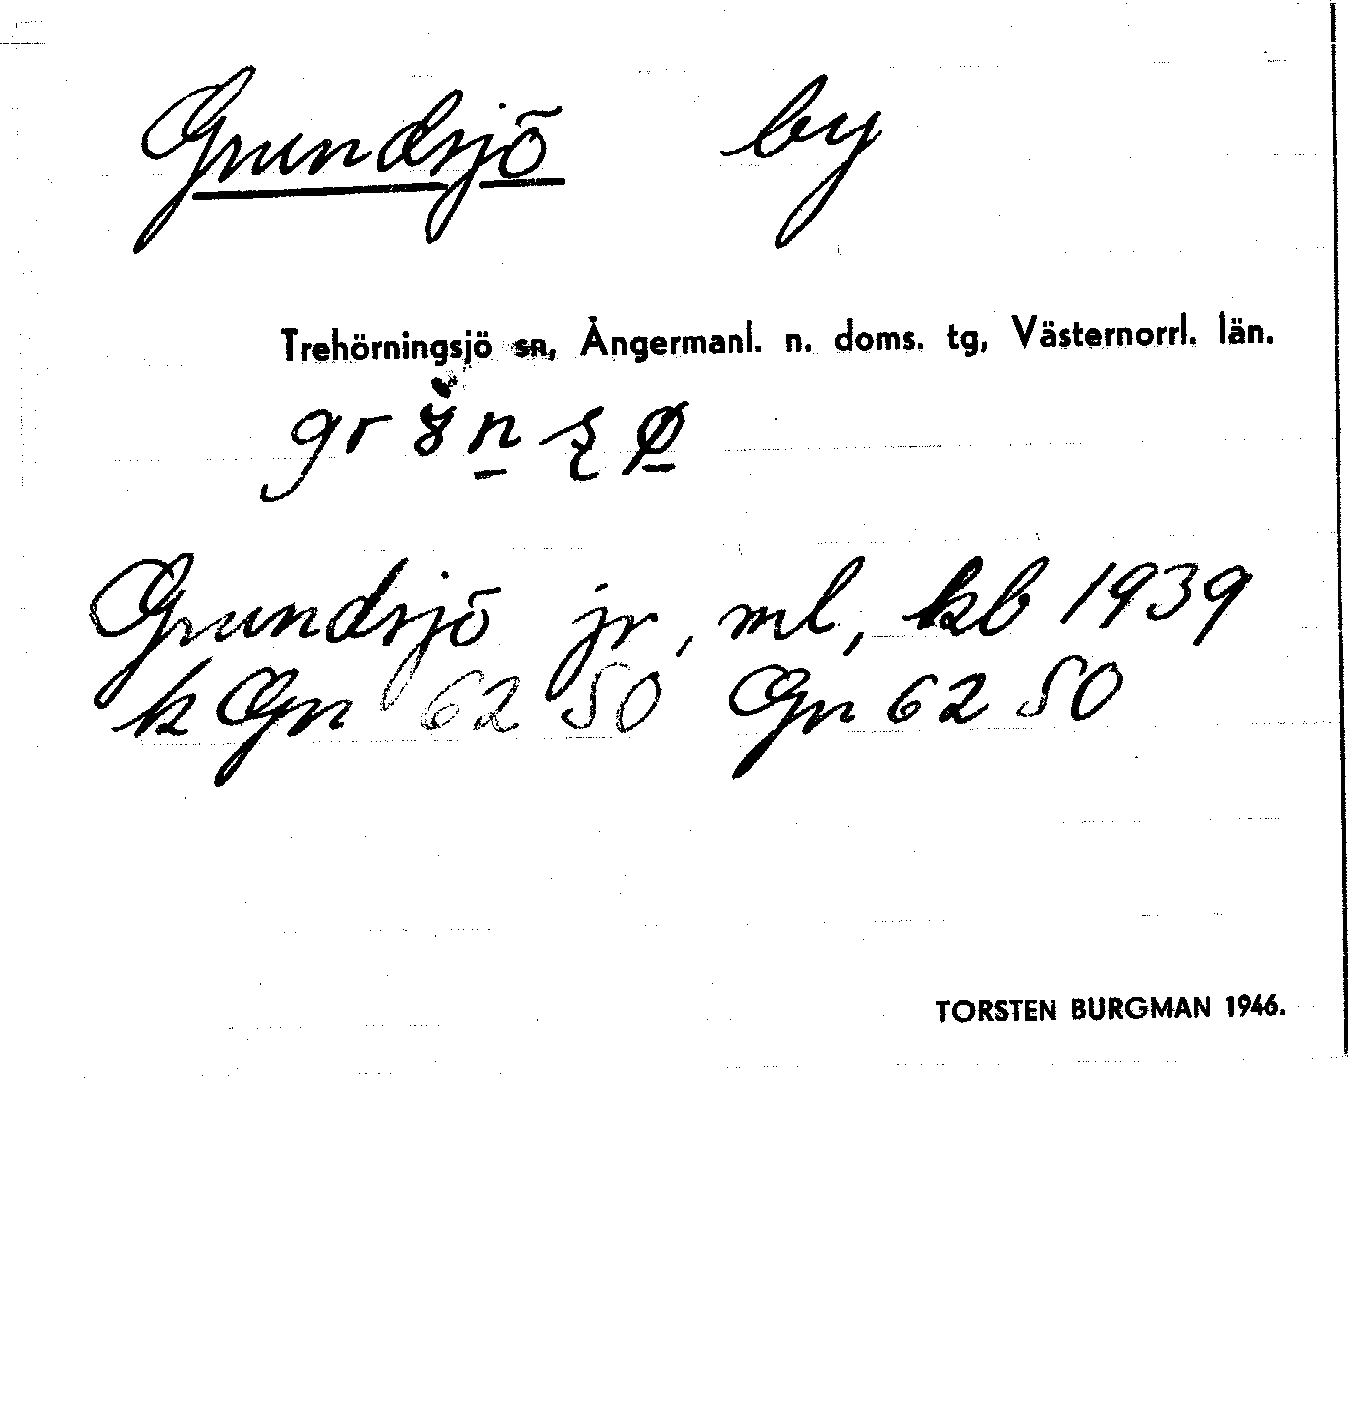 Grundsjö by
Trehörningsjö sn, Ångermanl. n. doms. tg, Västernorrl. län.
Grundsjö jr, ml, kb 1939
k Gn 62 50 Gn 62 50
TORSTEN BURGMAN 1946.